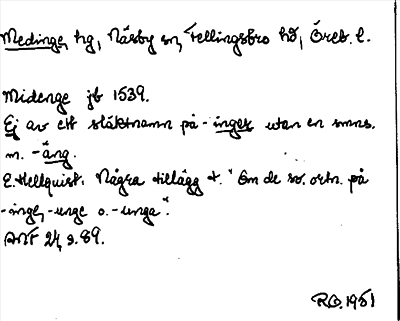 Medinge, hg, Näsby sn, Fellingsbro hd, Öreb. l.
Midenge jb 1539.
Ej av ett släktnamn på -inge, utan en smns.
m. -äng.
E. Hellquist. Några tillägg t. "Om de sv. ortn. på
-inge, -unge o. -unga".
ANF 24, s. 89.
R.O. 1951